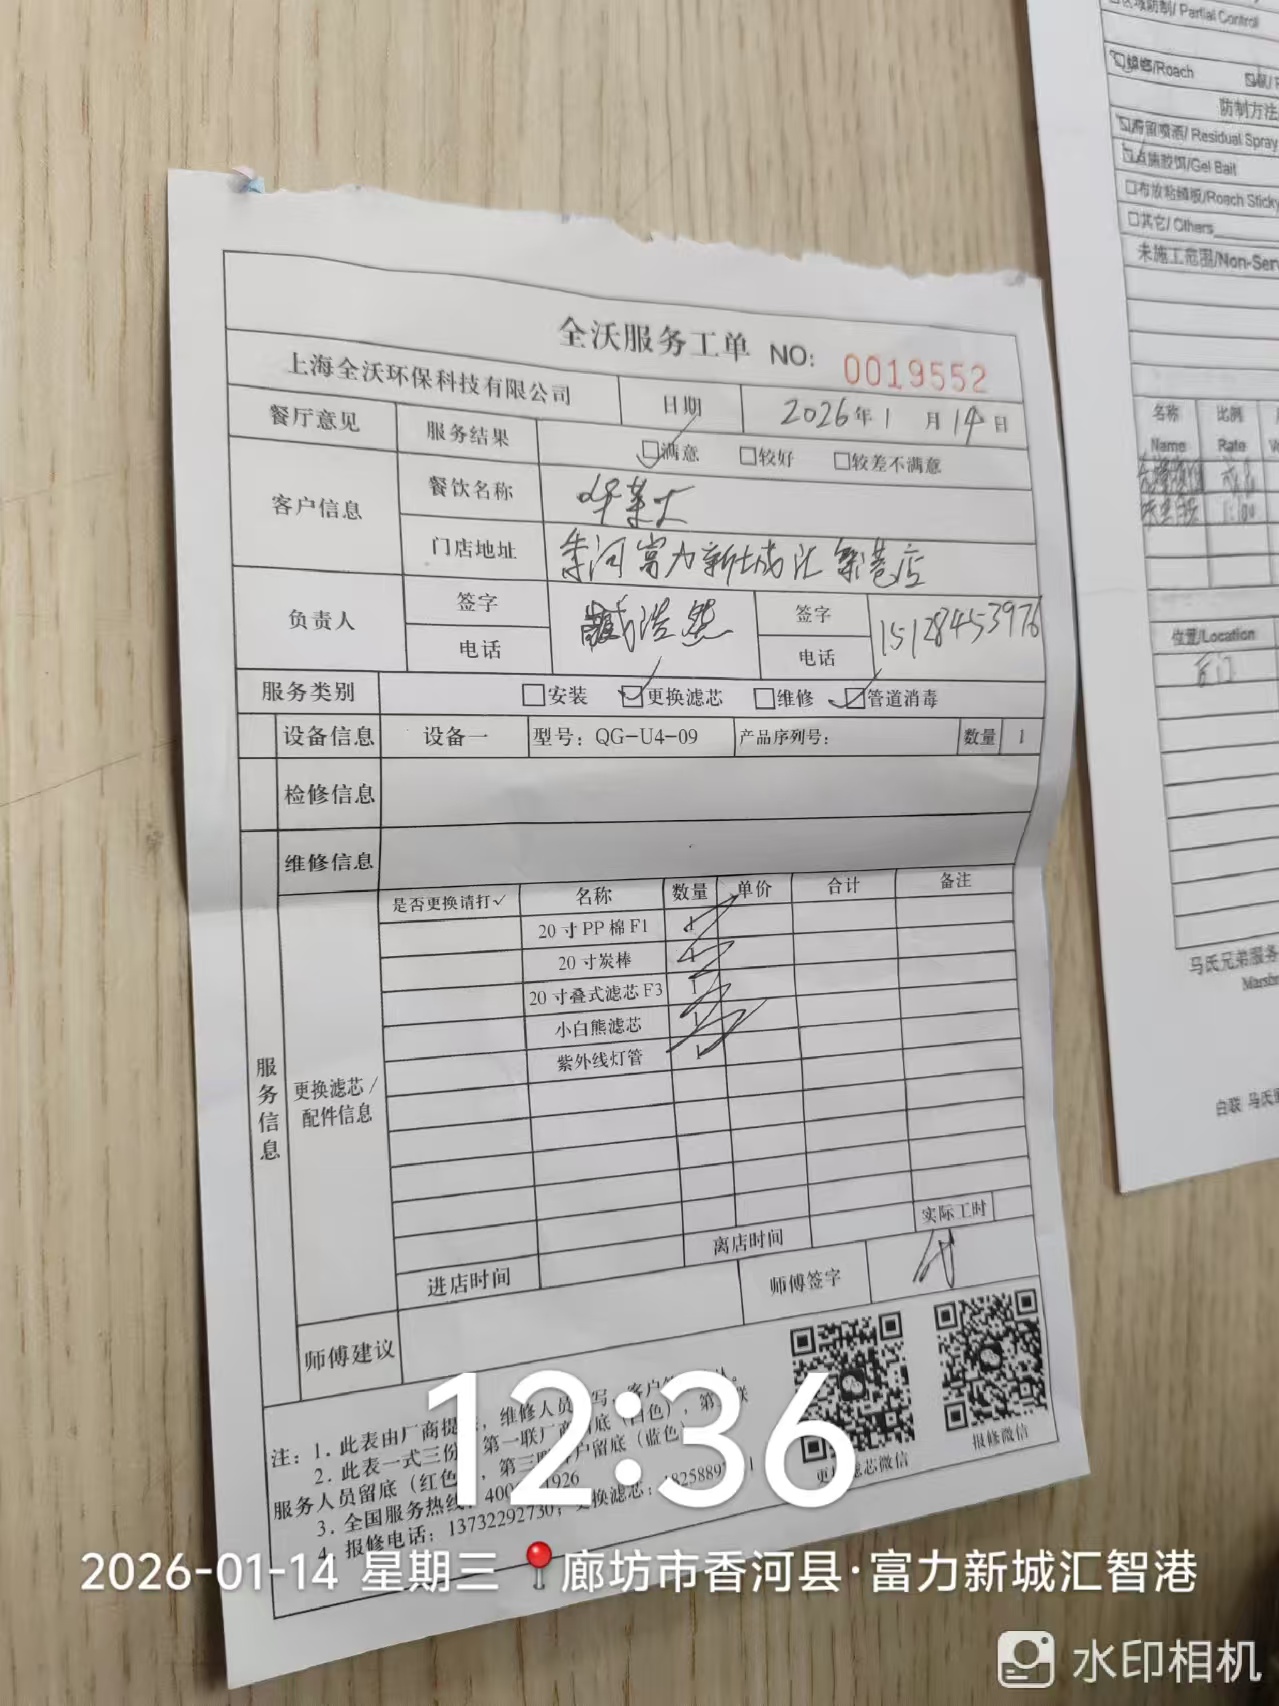 全沃服务工单 NO: 0019552
上海全沃环保科技有限公司 日期 2026年1月14日
餐厅意见 服务结果 ☑满意 □较好 □较差不满意
客户信息 餐饮名称 华莱士
门店地址 香河富力新城汇智港店
负责人 签字 臧浩然 签字 15128453976
电话 电话
服务类别 □安装 ☑更换滤芯 □维修 ☑管道消毒
设备信息 设备一 型号: QG-U4-09 产品序列号: 数量 1
检修信息
维修信息
服务信息
更换滤芯/配件信息
是否更换请打✓ 名称 数量 单价 合计 备注
20寸PP棉F1 1
20寸炭棒
20寸叠式滤芯F3 1
小白熊滤芯 1
紫外线灯管 1
进店时间 离店时间 实际工时
师傅建议 师傅签字
注: 1. 此表由厂商提 , 维修人员 写, 客户
2. 此表一式三份 第一联厂商留底(白色), 第 联
服务人员留底(红色), 第三联客户留底(蓝色)
3. 全国服务热线: 400 1926
4. 报修电话: 13732292730, 更换滤芯: 1825889 1
更换滤芯微信
报修微信
12:36
2026-01-14 星期三 廊坊市香河县·富力新城汇智港
水印相机
□区域防制/ Partial Control
蟑螂/Roach
防制方法
滞留喷洒/ Residual Spray
点施胶饵/Gel Bait
□布放粘蟑板/Roach Sticky
□其它/ Others
未施工范围/Non-Serv
名称 比例
Name Rate
1:100
位置/Location
后门
马氏兄弟服务
白联 马氏